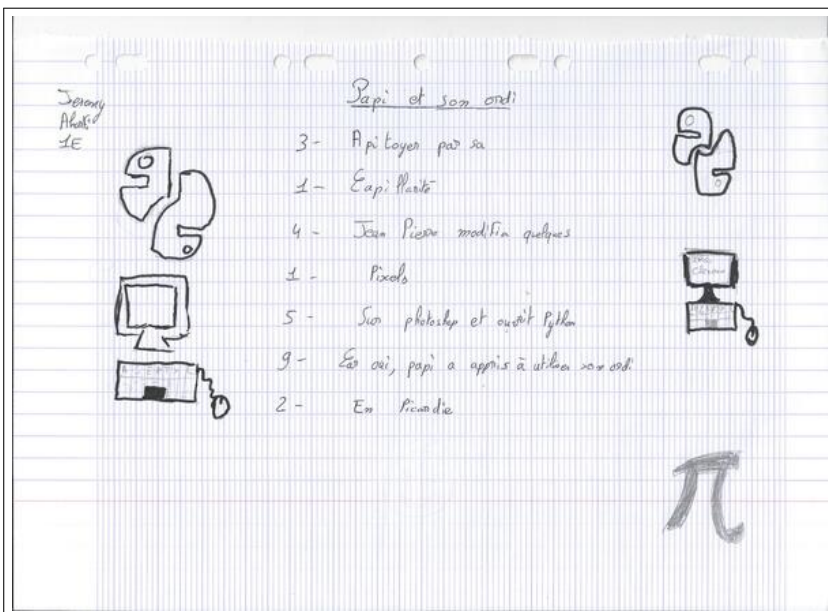 Papi et son ordi
Jeremy
1E
3- Apitoyer par sa
1- Capillarité
4- Jean Pierre modifia quelques
1- Pixels
5- Sur photoshop et ouvrit Python
9- Car oui, papi a appris à utiliser son ordi
2- En Picardie
π